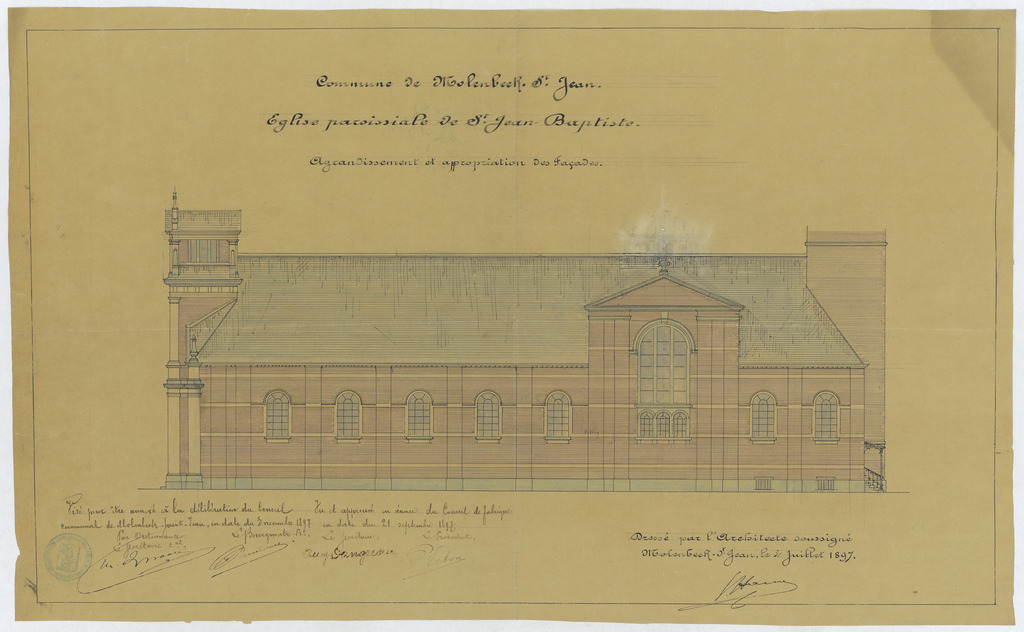 Commune de Molenbeek-St Jean.
Eglise paroissiale de St Jean-Baptiste.
Agrandissement et appropriation des Façades.
Visé pour être annexé à la délibération du Conseil
communal de Molenbeek-Saint-Jean, en date du 3 novembre 1897
Par Ordonnance
Le Secrétaire
Le Bourgmestre
Vu et approuvé en séance du Conseil de fabrique
en date du 21 septembre 1897.
Le Secrétaire
Le Président,
Dressé par l'Architecte soussigné
Molenbeek-St Jean, le 2 Juillet 1897.